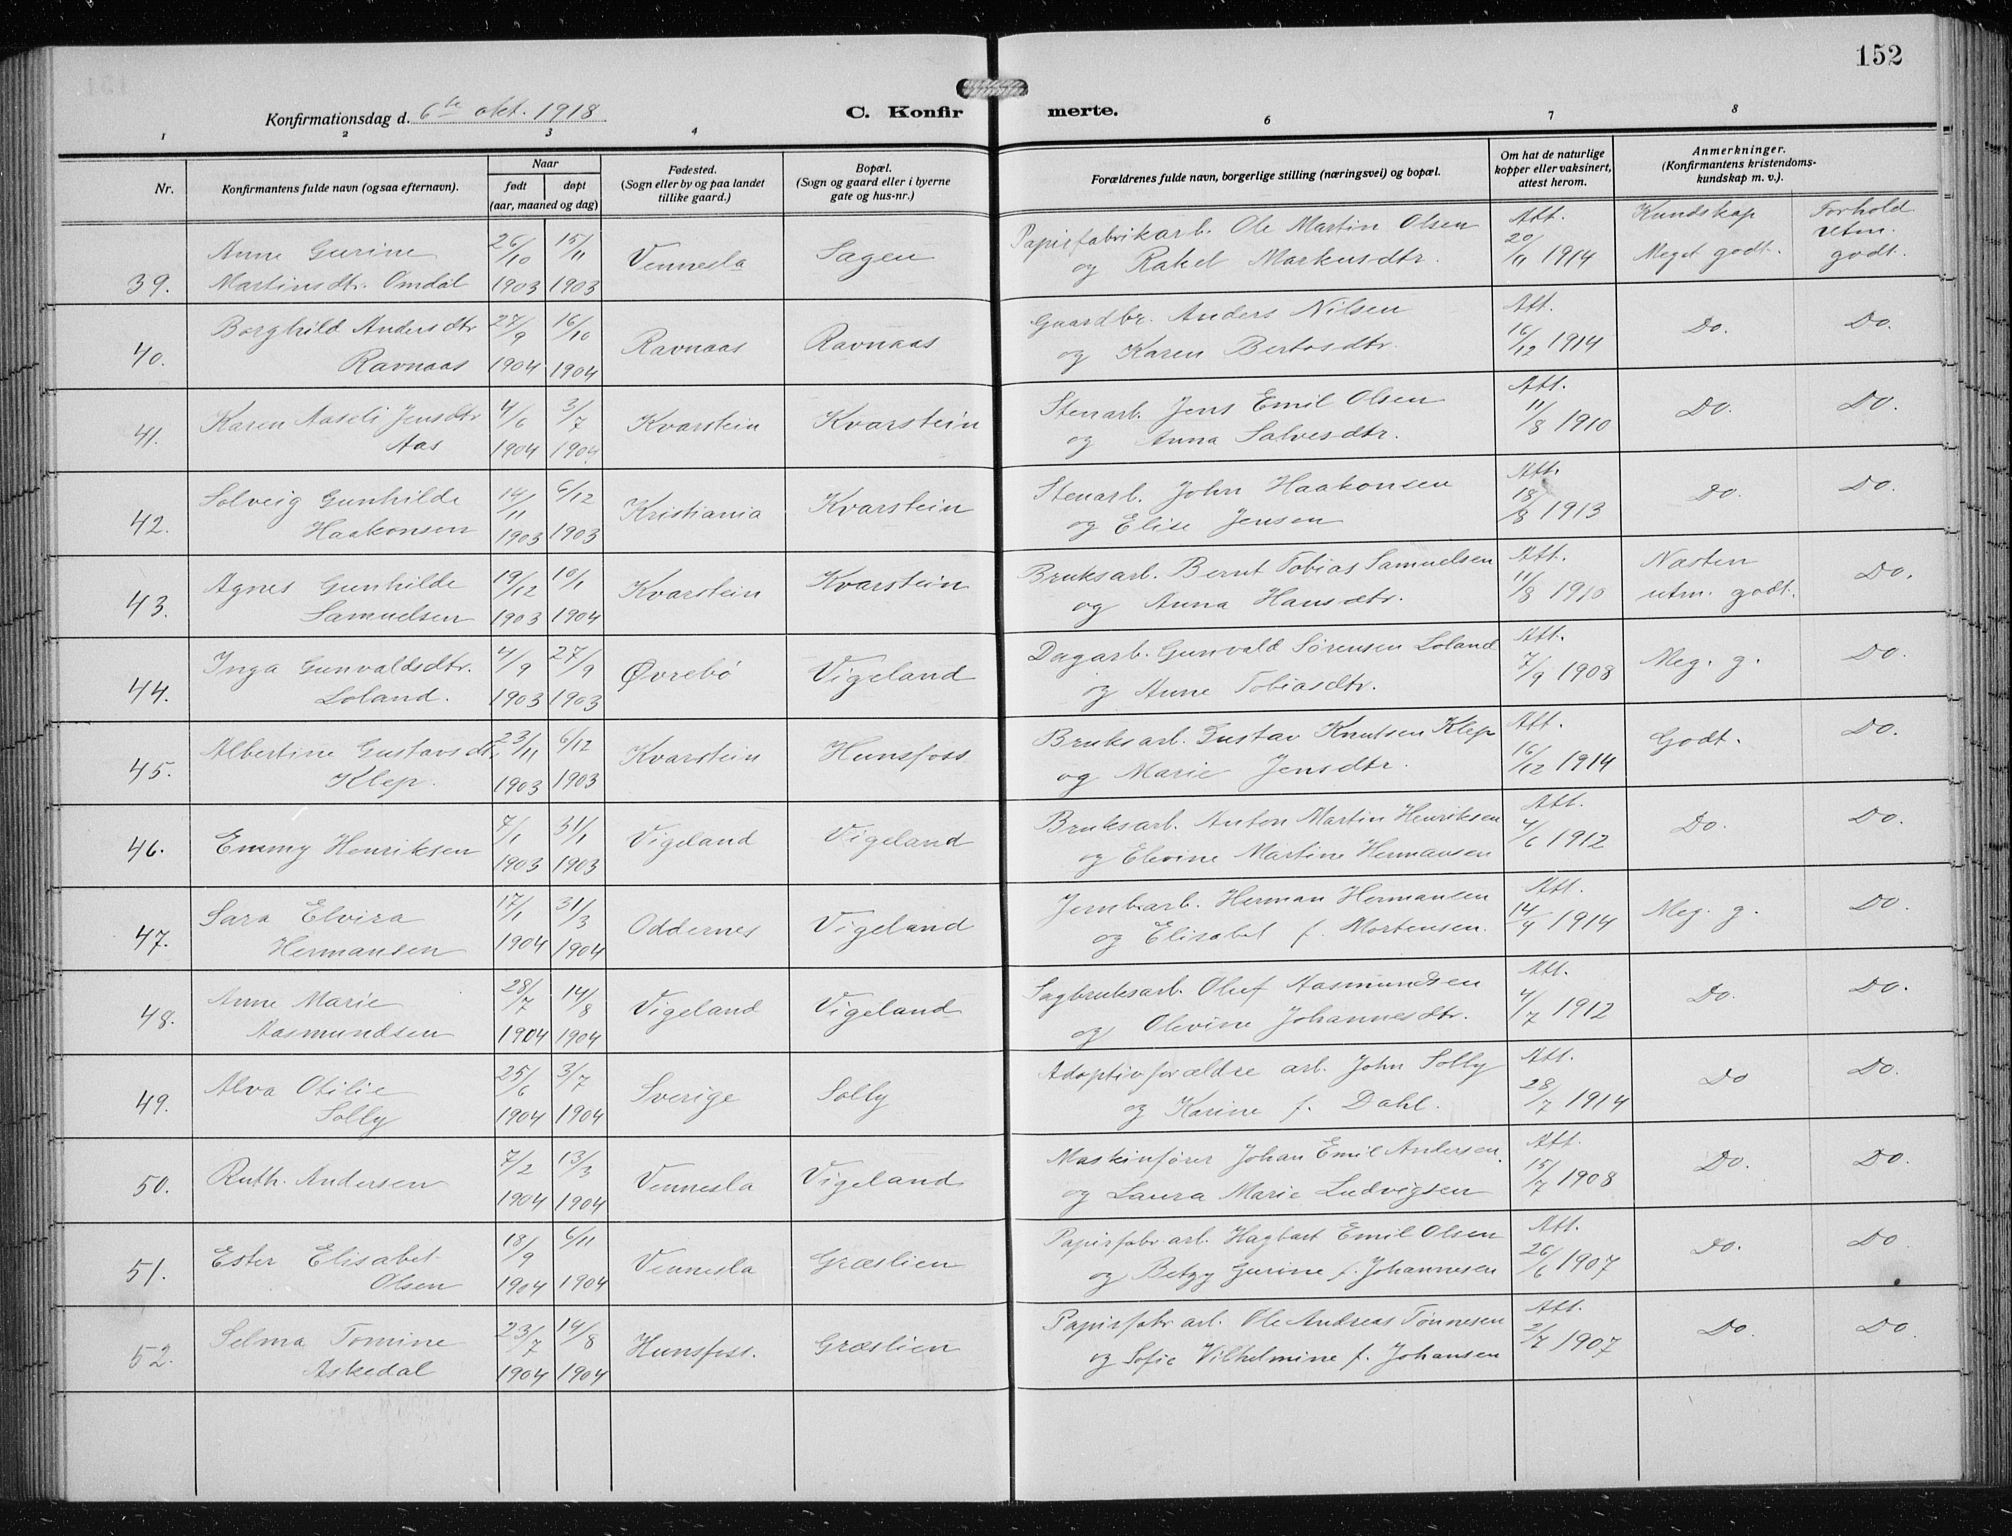 152
Konfirmationsdag d. 6te okt. 1918
C. Konfirmerte.
1 2 3 4 5 6 7 8
Nr.
Konfirmantens fulde navn (ogsaa efternavn).
Naar
født
døpt
(aar, maaned og dag)
Fødested.
(Sogn eller by og paa landet
tillike gaard.)
Bopæl.
(Sogn og gaard eller i byerne
gate og hus-nr.)
Forældrenes fulde navn, borgerlige stilling (næringsvei) og bopæl.
Om hat de naturlige
kopper eller vaksinert,
attest herom.
Anmerkninger.
(Konfirmantens kristendoms-
kundskap m. v.).
Kundskap Forhold
39. Anne Gurine Martinsdtr. Omdal 26/10 1903 15/11 1903 Vennesla Sagen Papirfabrikarb. Ole Martin Olsen og Rakel Markusdtr. Att. 20/11 1914 Meget godt. Utm. godt.
40. Borghild Andersdtr Ravnaas 27/9 1904 16/10 1904 Ravnaas Ravnaas Gaardbr. Anders Nilsen og Karen Bertosdtr. Att. 16/12 1914 Do. Do.
41. Karen Aaseli Jensdtr Aas 4/6 1904 3/7 1904 Kvarstein Kvarstein Stenarb. Jens Emil Olsen og Anna Salvesdtr. Att. 11/8 1910 Do. Do.
42. Solveig Gunhilde Haakonsen 14/11 1903 6/12 1903 Kristiania Kvarstein Stenarb. John Haakonsen og Elise Jensen Att. 18/8 1913 Do. Do.
43. Agnes Gunhilde Samuelsen 19/12 1903 10/1 1904 Kvarstein Kvarstein Bruksarb. Bernt Tobias Samuelsen og Anna Hansdtr. Att. 11/8 1910 Næsten utm. godt. Do.
44. Inga Gunvaldsdtr. Loland. 4/9 1903 27/9 1903 Øvrebö Vigeland Dagarb. Gunvald Sørensen Loland og Anne Tobiasdtr. Att. 7/9 1908 Meg. g. Do.
45. Albertine Gustavsdtr. Klep. 23/11 1903 6/12 1903 Kvarstein Hunsfoss Bruksarb. Gustav Knutsen Klep og Marie Jensdtr. Att. 16/12 1914 Godt. Do.
46. Emmy Henriksen 7/1 1903 31/1 1903 Vigeland Vigeland Bruksarb. Anton Martin Henriksen og Elevine Martine Hermansen Att. 4/6 1912 Do. Do.
47. Sara Elvira Hermansen 17/1 1904 31/3 1904 Oddernes Vigeland Jernb.arb. Herman Hermansen og Elisabet f. Mortensen. Att. 14/9 1914 Meg. g. Do.
48. Anne Marie Aasmundsen 28/7 1904 14/8 1904 Vigeland Vigeland Sagbruksarb. Oluf Aasmundsen og Olevine Johannesdtr. Att. 4/7 1912 Do. Do.
49. Alva Otilie Solly 25/6 1904 3/7 1904 Sverige Solly Adoptivforældre arb. John Solly og Karine f. Dahl. Att. 28/7 1914 Do Do.
50. Ruth. Andersen 7/2 1904 13/3 1904 Vennesla Vigeland Maskinfører Johan Emil Andersen. og Laura Marie Ludvigsen Att. 15/7 1908 Do. Do.
51. Ester Elisabet Olsen 18/9 1904 6/11 1904 Vennesla Græslien Papirfabr.arb. Hagbart Emil Olsen og Betzy Gurine f. Johannesen Att. 26/6 1907 Do. Do
52. Selma Tomine Askedal 23/7 1904 14/8 1904 Hunsfoss. Græslien Papirfabr.arb. Ole Andreas Tønnesen og Sofie Vilhelmine f. Johansen Att. 2/7 1907 Do. Do.